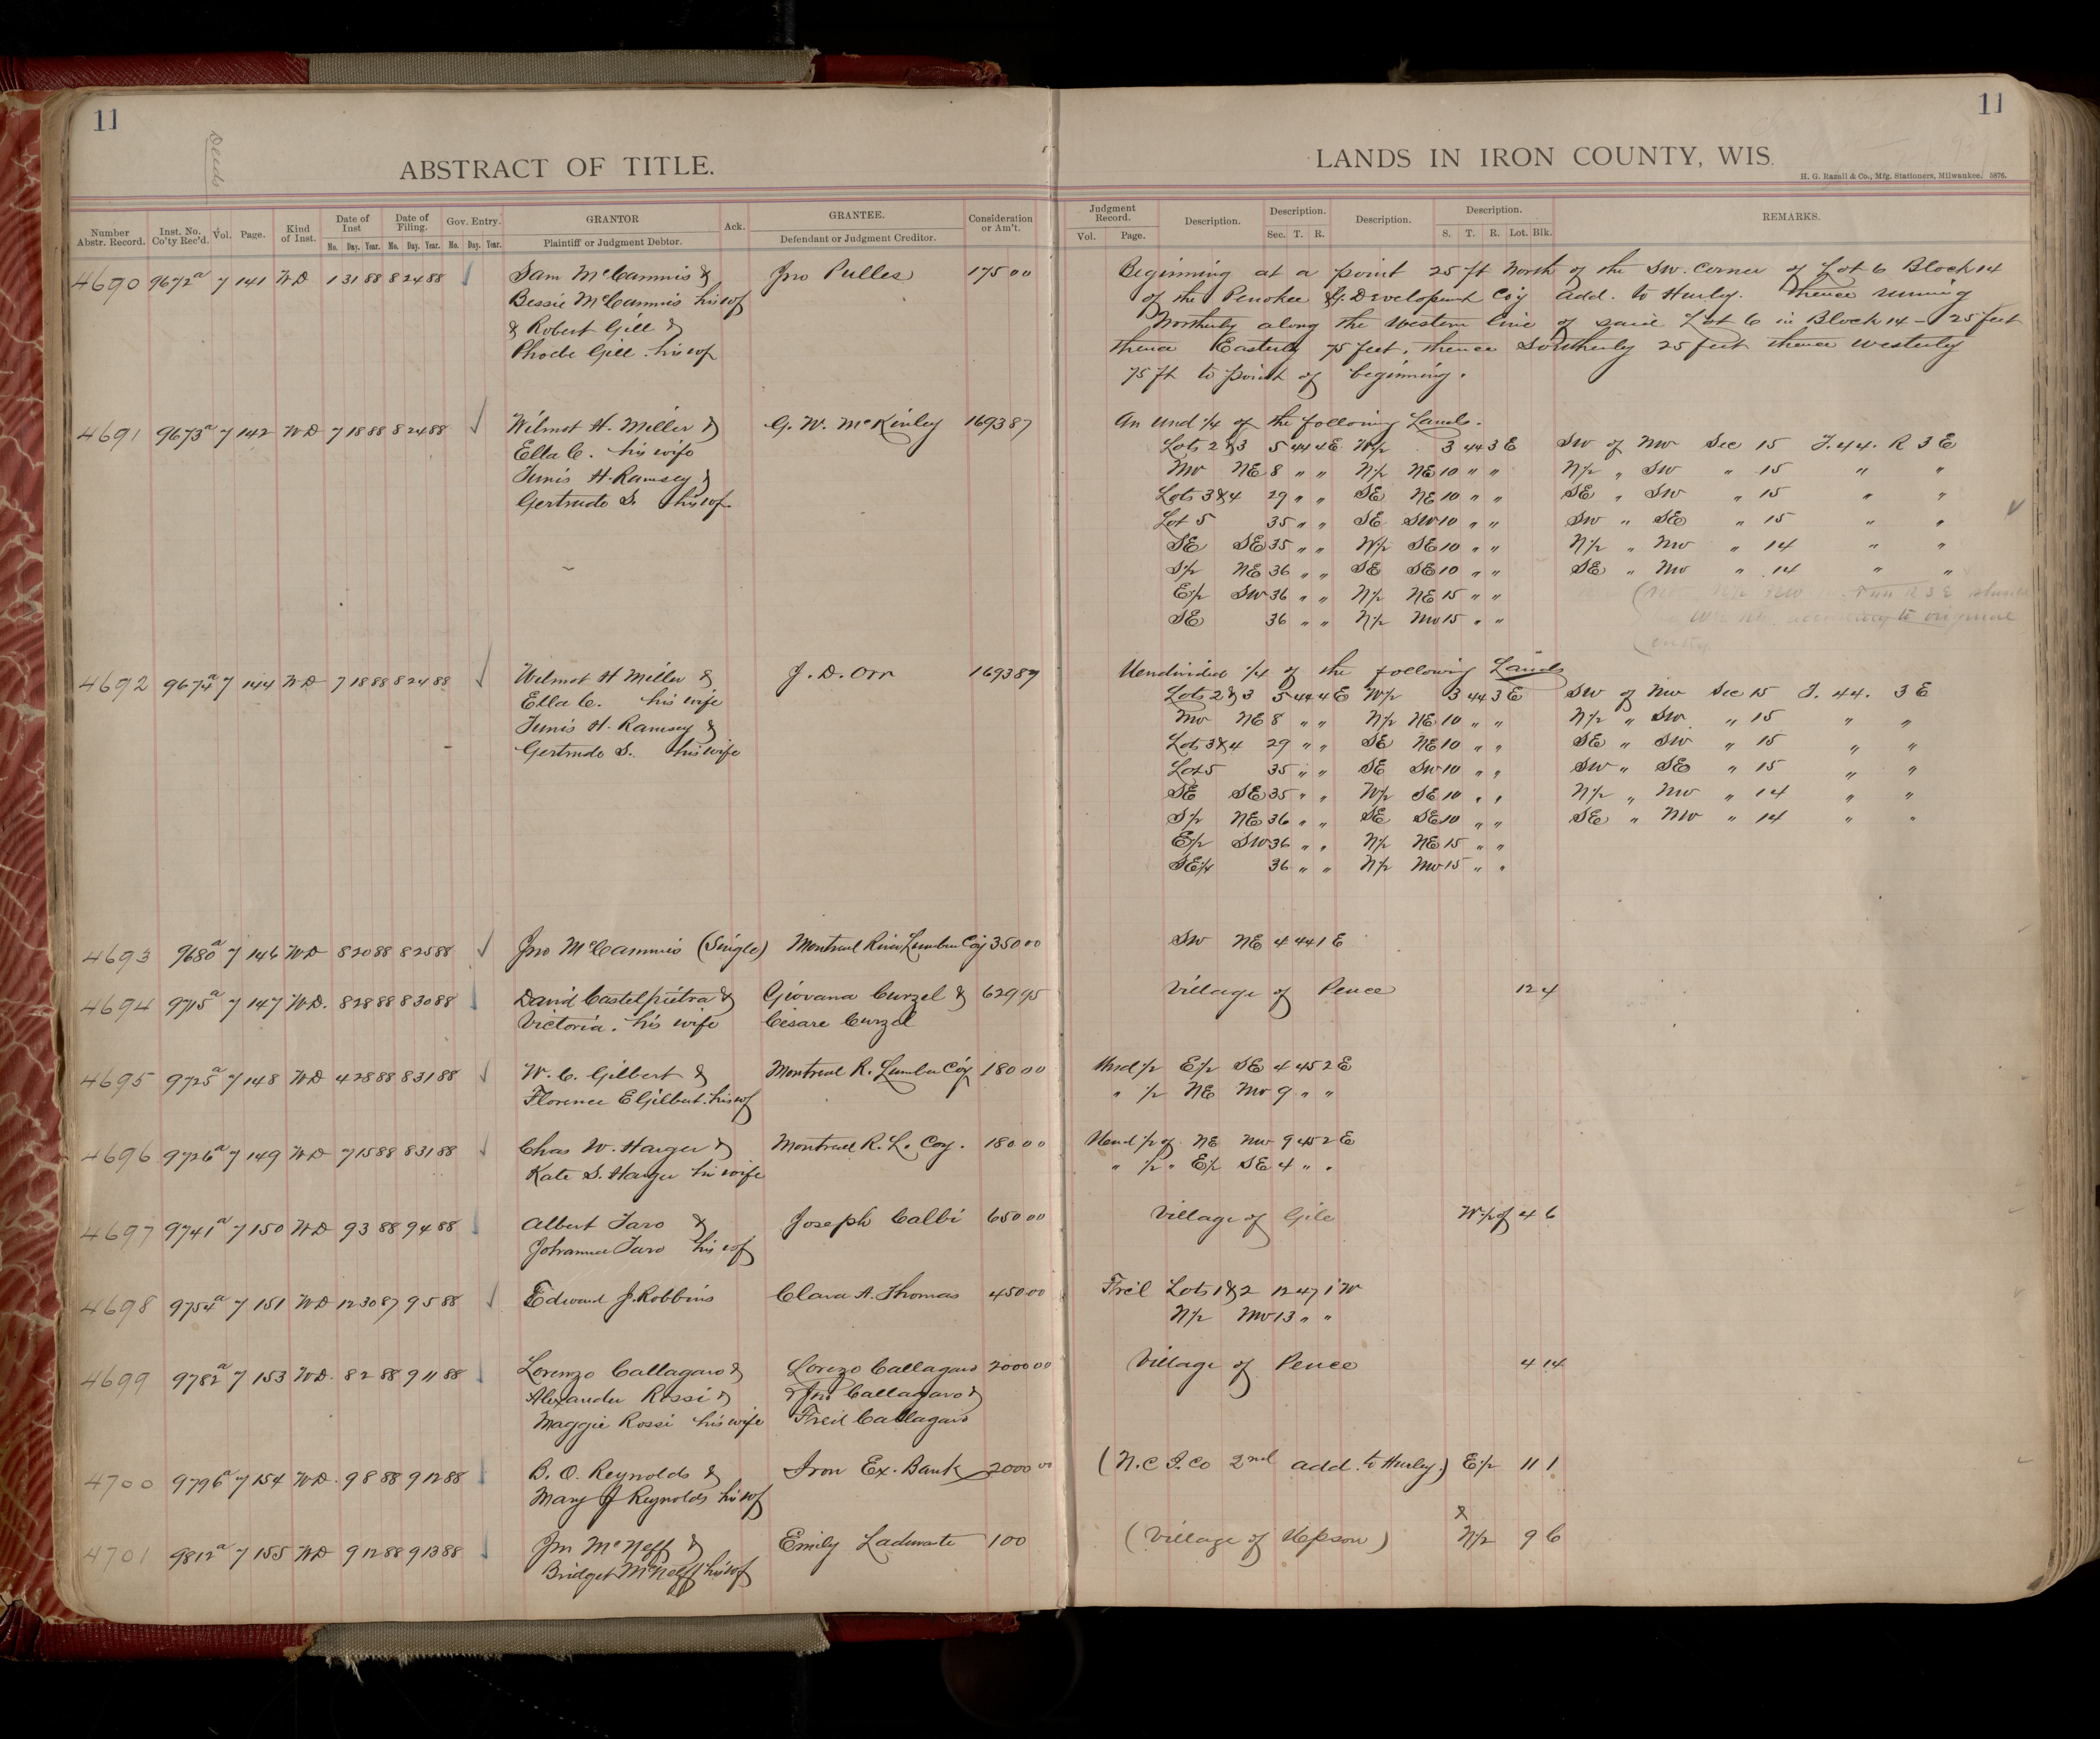 11
11
Deeds
ABSTRACT OF TITLE.
LANDS IN IRON COUNTY, WIS.
H. G. Razall & Co., Mfg. Stationers, Milwaukee. 5876.
Number Abstr. Record. Inst. No. Co'ty Rec'd. Vol. Page. Kind of Inst. Date of Inst Mo. Day. Year. Date of Filing. Mo. Day. Year. Gov. Entry. Mo. Day. Year. GRANTOR Plaintiff or Judgment Debtor. Ack. GRANTEE. Defendant or Judgment Creditor. Consideration or Am't.
Judgment Record. Vol. Page. Description. Description. Sec. T. R. Description. Description. S. T. R. Lot. Blk. REMARKS.
4690 9672a 7 141 WD 1 31 88 8 24 88 Sam McCammis & Jno Pulles 175 00 Beginning at a point 25 ft North of the SW. Corner of Lot 6 Block 14
Bessie McCammis his wf of the Penokee & G. Development Coy add. to Hurley. thence running
& Robert Gill & Northerly along the Western line of said Lot 6 in Block 14 - 25 feet
Phoebe Gill his wf thence Easterly 75 feet, thence Southerly 25 feet thence westerly
75 ft to point of beginning.
4691 9673a 7 142 WD 7 18 88 8 24 88 Wilmot H. Miller & G. W. McKinley 1693 87 An und 1/4 of the following Lands.
Ella C. his wife Lots 2 & 3 5 44 4E W/2 3 44 3 E SW of NW Sec 15 T. 44. R 3 E
Tunis H. Ramsey & NW NE 8 " " N/2 NE 10 " " N/2 " SW " 15 " "
Gertrude S. his wf. Lots 3 & 4 29 " " SE NE 10 " " SE " SW " 15 " "
Lot 5 35 " " SE SW 10 " " SW " SE " 15 " "
SE SE 35 " " W/2 SE 10 " " N/2 " NW " 14 " "
S/2 NE 36 " " SE SE 10 " " SE " NW " 14 " "
E/2 SW 36 " " N/2 NE 15 " "
SE 36 " " N/2 NW 15 " "
according to original
entry
4692 9674a 7 144 WD 7 18 88 8 24 88 Wilmot H Miller & J. D. Orr 1693 87 Uendivided 1/4 of the following Lands
Ella C. his wife Lots 2 & 3 5 44 4 E W/2 3 44 3 E SW of NW Sec 15 T. 44. 3 E
Tunis H. Ramsey & NW NE 8 " " N/2 NE 10 " " N/2 " SW " 15 " "
Gertrude S. his wife Lots 3 & 4 29 " " SE NE 10 " " SE " SW " 15 " "
Lot 5 35 " " SE SW 10 " " SW " SE " 15 " "
SE SE 35 " " W/2 SE 10 " " N/2 " NW " 14 " "
S/2 NE 36 " " SE SE 10 " " SE " NW " 14 " "
E/2 SW 36 " " N/2 NE 15 " "
SE/4 36 " " N/2 NW 15 " "
4693 9680a 7 146 WD 8 20 88 8 25 88 Jno McCammis (Single) Montreal River Lumber Coy 350 00 SW NE 4 44 1 E
4694 9715a 7 147 WD. 8 28 88 8 30 88 David Castelpietra & Giovana Curzel & 629 95 Village of Pence 12 4
Victoria. his wife Cesare Curzel
4695 9725a 7 148 WD 4 28 88 8 31 88 W. C. Gilbert & Montreal R. Lumber Coy 180 00 Und 1/2 E/2 SE 4 45 2 E
Florence E Gilbert. his wf " 1/2 NE NW 9 " "
4696 9726a 7 149 WD 7 15 88 8 31 88 Chas W. Harger & Montreal R. L. Coy. 180 00 Uend 1/2 of NE NW 9 45 2 E
Kate S. Harger his wife " 1/2 " E/2 SE 4 " "
4697 9741a 7 150 WD 9 3 88 9 4 88 Albert Taro & Joseph Calbi 650 00 Village of Gile W/2 of 4 6
Johanna Taro his wf
4698 9754a 7 151 WD 12 30 87 9 5 88 Edward J. Robbins Clara A. Thomas 450 00 Fr'cl Lots 1 & 2 12 47 1 W
N/2 NW 13 " "
4699 9782a 7 153 WD. 8 2 88 9 11 88 Lorenzo Callagaro & Lorezo Callagaro 2000 00 Village of Pence 4 14
Alexander Rossi & & Jno Callagaro &
Maggie Rossi his wife Fred Callagaro
4700 9796a 7 154 WD. 9 8 88 9 12 88 B. O. Reynolds & Iron Ex. Bank 2000 00 (N. C I. Co 2nd add. to Hurley.) E/2 11 1
Mary J Reynolds his wf
&
4701 9812a 7 155 WD 9 12 88 9 13 88 Jno McNeff & Emily Laduwate 1 00 (Village of Upson) N/2 9 6
Bridget McNeff his wf